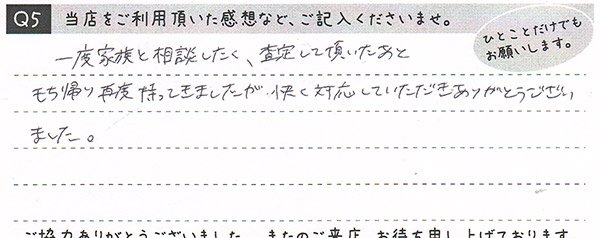 Q5 当店をご利用頂いた感想など、ご記入くださいませ。
ひとことだけでも
お願いします。
一度家族と相談したく、査定して頂いたあと
もち帰り再度持ってきましたが、快く対応していただきありがとうござい
ました。
ご協力ありがとうございました。またのご来店、お待ち申し上げております。